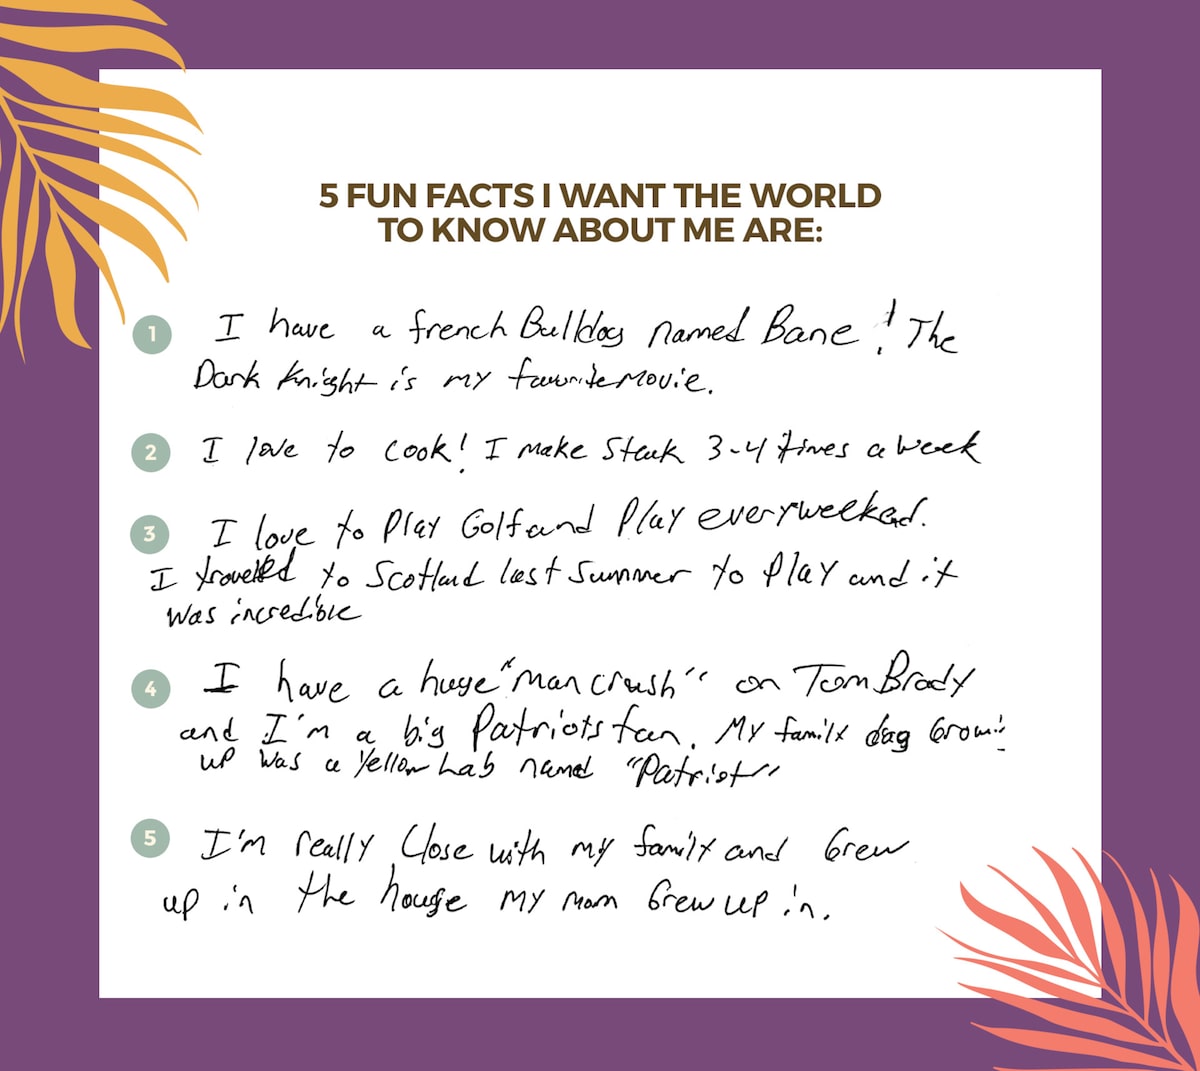 5 FUN FACTS I WANT THE WORLD
TO KNOW ABOUT ME ARE:
1 I have a french Bulldog named Bane! The
Dark Knight is my favorite movie.
2 I love to cook! I make Steak 3-4 times a week
3 I love to Play Golf and Play every weekend.
I travelled to Scotland last Summer to Play and it
was incredible
4 I have a huge "man crush" on Tom Brady
and I'm a big Patriots fan. My family dog Growing
up was a Yellow Lab named "Patriot"
5 I'm really Close with my family and Grew
up in the house my mom Grew up in.